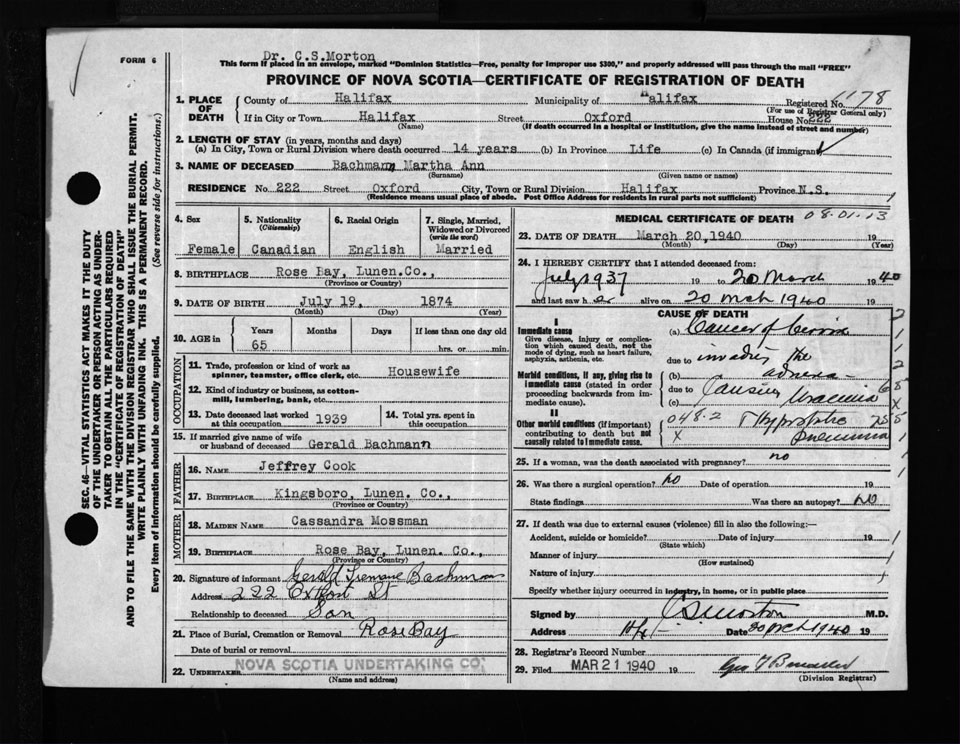 FORM 6
Dr. C.S.Morton
This form if placed in an envelope, marked "Dominion Statistics—Free, penalty for improper use $300," and properly addressed will pass through the mail "FREE"
PROVINCE OF NOVA SCOTIA—CERTIFICATE OF REGISTRATION OF DEATH
1. PLACE OF DEATH { County of Halifax Municipality of "alifax Registered No. 1178
(For use of Registrar General only)
If in City or Town Halifax Street Oxford House No. 222
(Name) (If death occurred in a hospital or institution, give the name instead of street and number)
2. LENGTH OF STAY (in years, months and days)
(a) In City, Town or Rural Division where death occurred 14 years (b) In Province Life (c) In Canada (if immigrant)
3. NAME OF DECEASED Bachman, Martha Ann
(Surname) (Given name or names)
RESIDENCE No. 222 Street Oxford City, Town or Rural Division Halifax Province N.S.
(Residence means usual place of abode. Post Office Address for residents in rural parts not sufficient)
4. Sex
Female
5. Nationality
(Citizenship)
Canadian
6. Racial Origin
English
7. Single, Married, Widowed or Divorced
(write the word)
Married
8. BIRTHPLACE Rose Bay, Lunen.Co.,
(Province or Country)
9. DATE OF BIRTH July 19, 1874
(Month) (Day) (Year)
10. AGE in { Years Months Days If less than one day old
65 hrs. or min.
OCCUPATION
11. Trade, profession or kind of work as spinner, teamster, office clerk, etc. Housewife
12. Kind of industry or business, as cotton-mill, lumbering, bank, etc.
13. Date deceased last worked at this occupation 1939
14. Total yrs. spent in this occupation
15. If married give name of wife or husband of deceased Gerald Bachmann
FATHER
16. NAME Jeffrey Cook
17. BIRTHPLACE Kingsboro, Lunen. Co.,
(Province or Country)
MOTHER
18. MAIDEN NAME Cassandra Mossman
19. BIRTHPLACE Rose Bay, Lunen. Co.,
(Province or Country)
20. Signature of informant Gerald Bachman
Address 222 Oxford St
Relationship to deceased Son
21. Place of Burial, Cremation or Removal Rose Bay
Date of burial or removal
22. UNDERTAKER NOVA SCOTIA UNDERTAKING CO.
(Name and address)
MEDICAL CERTIFICATE OF DEATH 08-01-13
23. DATE OF DEATH March 20,1940 19
(Month) (Day) (Year)
24. I HEREBY CERTIFY that I attended deceased from:
July 1937 19 to 20 March 1940
and last saw her alive on 20 Mch 1940 19
CAUSE OF DEATH
I
Immediate cause
Give disease, injury or complication which caused death, not the mode of dying, such as heart failure, asphyxia, asthenia, etc.
(a) Cancer of Cervix
due to invading the
Morbid conditions, if any, giving rise to immediate cause (stated in order proceeding backwards from immediate cause).
(b) adnexa
due to Causing Uraemia
(c)
II
Other morbid conditions (if important) contributing to death but not causally related to immediate cause.
048.2 Hypostatic
X Pneumonia
25. If a woman, was the death associated with pregnancy? no
26. Was there a surgical operation? No Date of operation 19
State findings Was there an autopsy? No
27. If death was due to external causes (violence) fill in also the following:—
Accident, suicide or homicide? Date of injury 19
(State which)
Manner of injury
(How sustained)
Nature of injury
Specify whether injury occurred in industry, in home, or in public place
Signed by CS Morton M.D.
Address Hfx Date 20 Mch 1940 19
28. Registrar's Record Number
29. Filed MAR 21 1940 19
(Division Registrar)
SEC. 46—VITAL STATISTICS ACT MAKES IT THE DUTY
OF THE UNDERTAKER OR PERSON ACTING AS UNDER-
TAKER TO OBTAIN ALL THE PARTICULARS REQUIRED
IN THE "CERTIFICATE OF REGISTRATION OF DEATH"
AND TO FILE THE SAME WITH THE DIVISION REGISTRAR WHO SHALL ISSUE THE BURIAL PERMIT.
WRITE PLAINLY WITH UNFADING INK. THIS IS A PERMANENT RECORD.
Every item of Information should be carefully supplied. (See reverse side for instructions.)